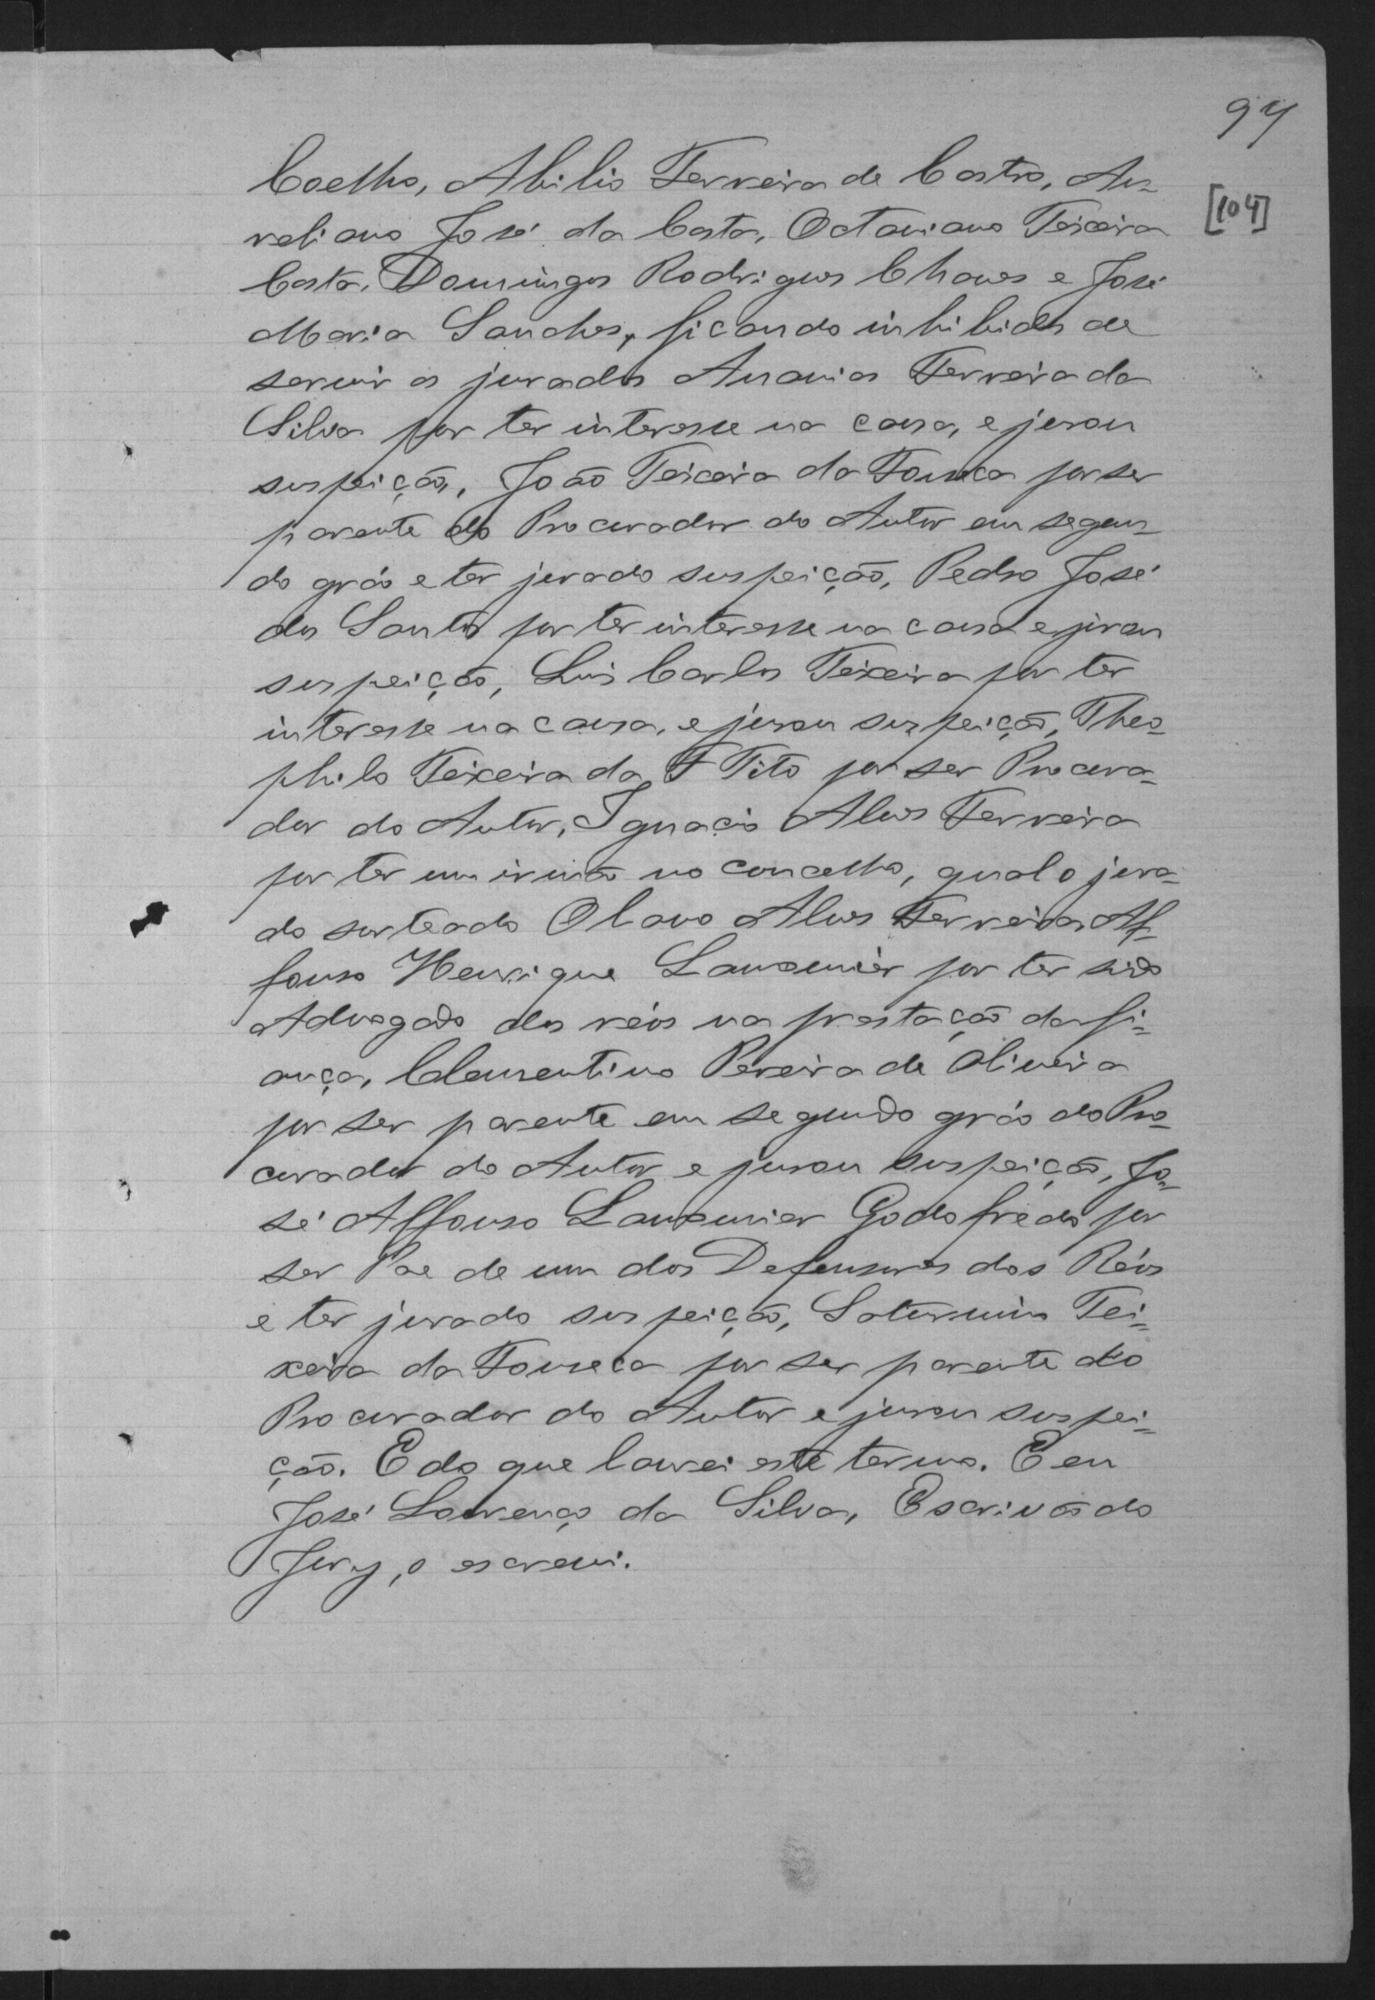 94
[104]
Coelho, Abilio Ferreira de Castro, Au=
reliano José da Costa, Octaviano Teixeira
Costa, Domingos Rodrigues Chaves e José
Maria Sanches, ficando inhibidos de
servir os jurados Ananias Ferreira da
Silva por ter interesse na causa, e jurou
suspeição, João Teixeira da Fonseca por ser
parente do Procurador do Autor em segun=
do gráo e ter jurado suspeição, Pedro José
dos Santos por ter interesse na causa e jurou
suspeição, Luis Carlos Teixeira por ter
interesse na causa, e jurou suspeição, Theo=
philo Teixeira da F Tito por ser Procura=
dor do Autor, Ignacio Alves Ferreira
por ter um irmão no concelho, qual o jura=
do sorteado Olavo Alves Ferreira, Af=
fonso Henrique Laumenier por ter sido
Advogado dos réos na prestação da fi=
ança, Clementino Pereira de Oliveira
por ser parente em segundo gráo do Pro=
curador do Autor e jurou suspeição, Jo=
sé Affonso Godofredo por
ser Pae de um dos Defensores dos Réos
e ter jurado suspeição, Saturnino Tei=
xeira da Fonseca por ser parente do
Procurador do Autor e jurou suspei=
ção. E do que lavrei este termo. E eu
José Lourenço da Silva, Escrivão do
Jury, o escrevi.